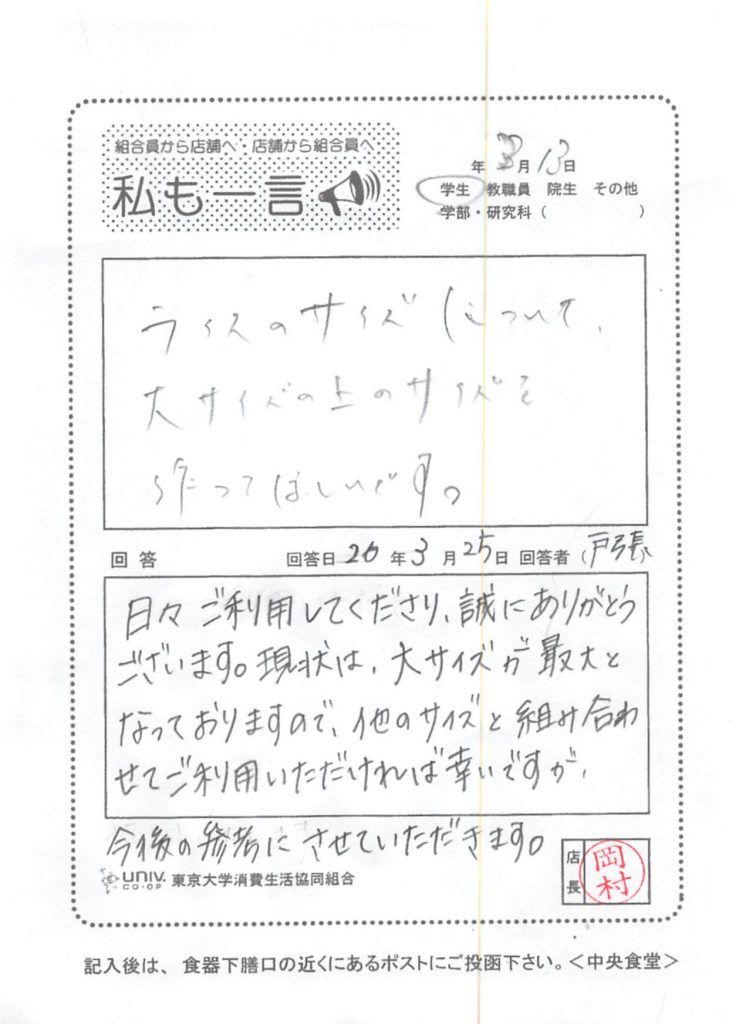 組合員から店舗へ・店舗から組合員へ
私も一言
年 3月 13日
学生 教職員 院生 その他
学部・研究科( )
ライスのサイズについて、
大サイズの上のサイズを
作ってほしいです。
回答 回答日 26年 3月 25日 回答者(戸張)
日々ご利用してくださり、誠にありがとう
ございます。現状は、大サイズが最大と
なっておりますので、他のサイズと組み合わ
せてご利用いただければ幸いですが、
今後の参考にさせていただきます。
UNIV. CO-OP 東京大学消費生活協同組合
店長 岡村
記入後は、食器下膳口の近くにあるポストにご投函下さい。<中央食堂>